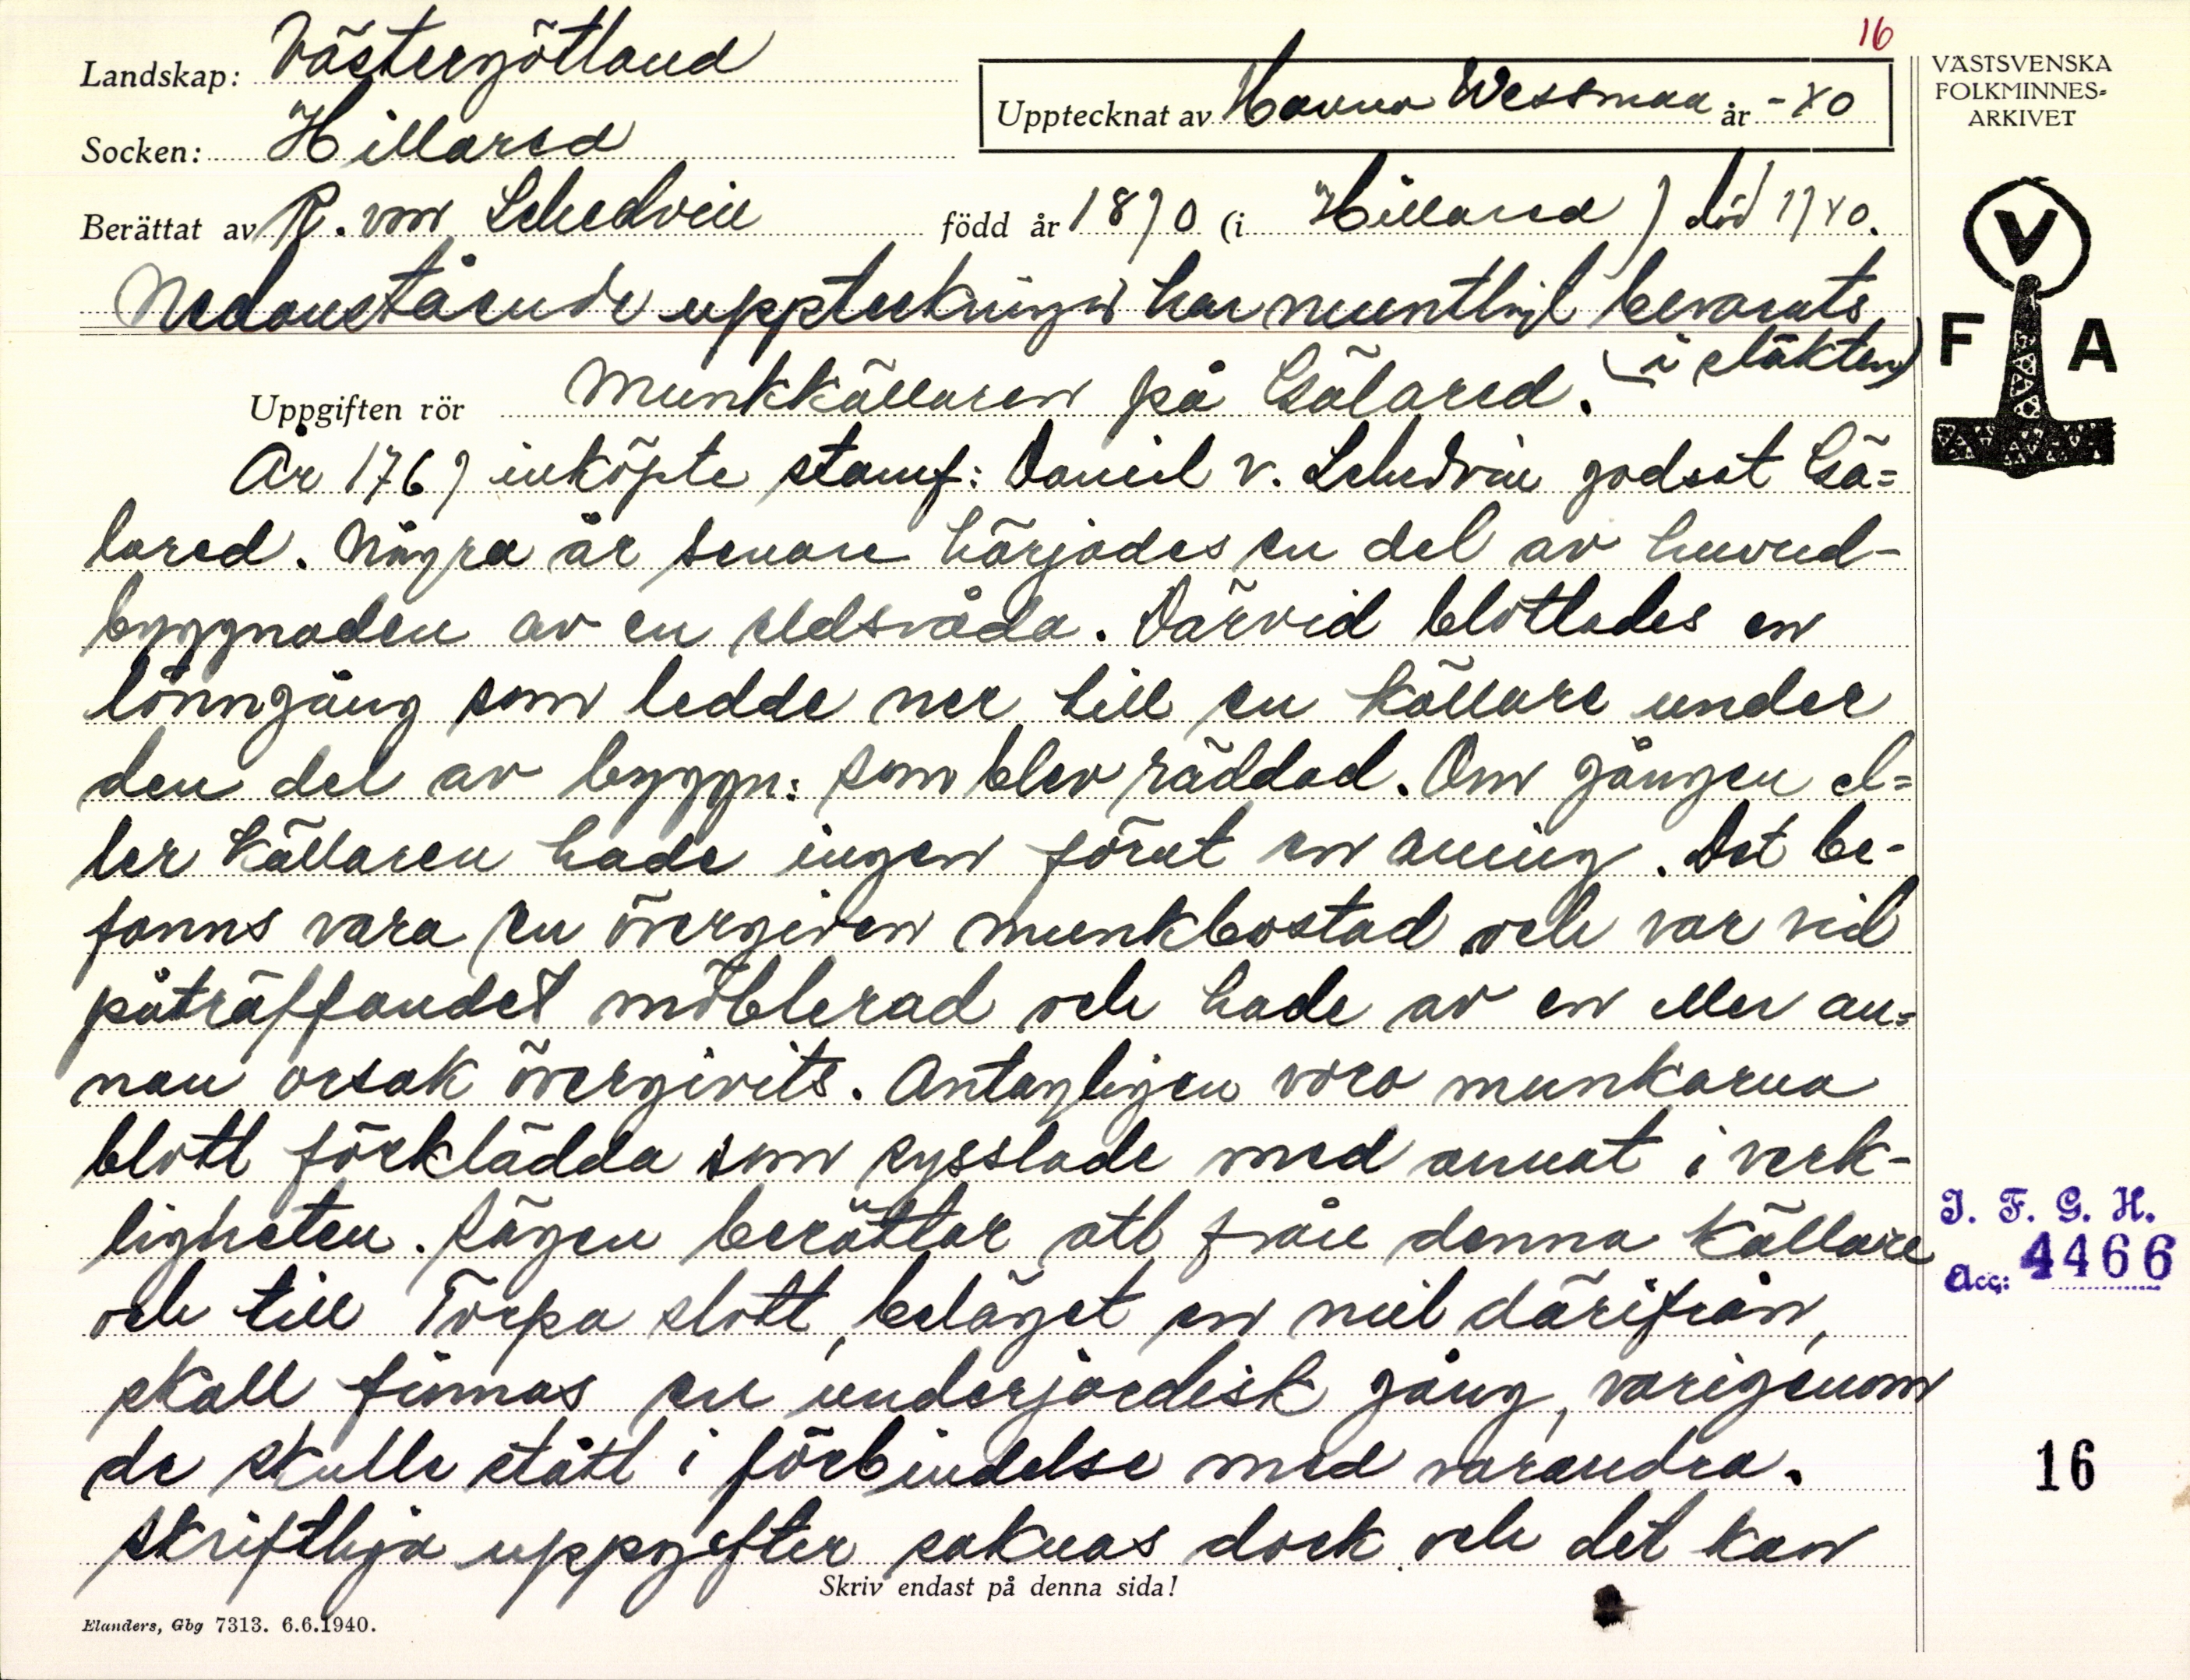 16
Landskap: Västergötland
Upptecknat av Hanna Wessman år -40
Socken: Hillared
Berättat av R. von Schedvin född år 1890 (i Hillared) död 1940.
Nedanstående uppteckningar har muntligt bevarats
(i släkten)
Uppgiften rör Munkkällaren på Gälared.
År 1769 inköpte stamf: Daniel v. Schedvin godset Gä=
lared. Några år senare härjades en del av huvud-
byggnaden av en eldsvåda. Därvid blottades en
lönngång som ledde ner till en källare under
den del av byggn: som blev räddad. Om gången el=
ler källaren hade ingen förut en aning. Det be-
fanns vara en övergiven munkbostad och var vid
påträffandet möblerad och hade av en eller an=
nan orsak övergivits. Antagligen voro munkarna
blott förklädda som sysslade med annat i verk-
ligheten. Sägen berättar att från denna källare
och till Torpa slott, beläget en mil därifrån,
skall finnas en underjordisk gång, varigenom
de skulle stått i förbindelse med varandra.
Skriftliga uppgifter saknas dock och det kan
Skriv endast på denna sida!
Elanders, Gbg 7313. 6.6.1940.
VÄSTSVENSKA
FOLKMINNES-
ARKIVET
V
F A
I. F. G. H.
Acc: 4466
16